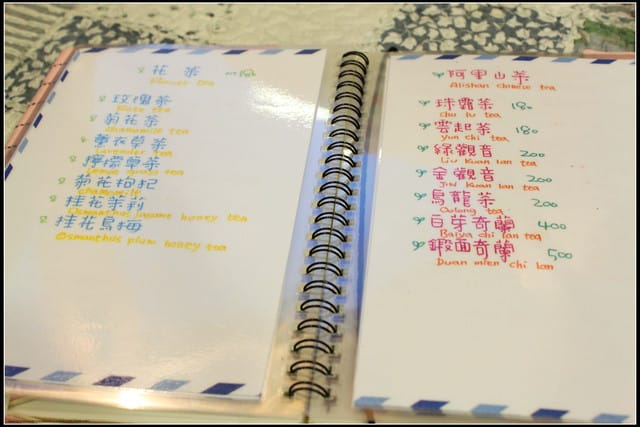 花茶
Flower tea
玫瑰茶
Rose tea
菊花茶
chamomile tea
薰衣草茶
Lavender tea
檸檬草茶
Lemon grass tea
菊花枸杞
chamomile
桂花茉莉
Osmanthus jasmine honey tea
桂花烏梅
Osmanthus plum honey tea
阿里山茶
Alishan chinese tea
珠露茶 180
chu lu tea
雲起茶 180
yun chi tea
綠觀音 200
Liu Kuan Ian tea
金觀音 200
JIN Kuan Ian tea
烏龍茶 200
Oolong tea
白芽奇蘭 400
Baiya chi lan tea
鍛面奇蘭 500
Duan mien chi lan